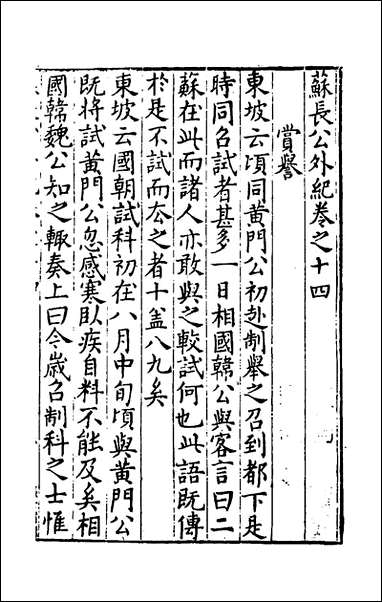 蘇長公外紀卷之十四
賞譽
東坡云頃同黃門公初赴制舉之召到都下是
時同召試者甚多一日相國韓公與客言曰二
蘇在此而諸人亦敢與之較試何也此語既傳
於是不試而去之者十盖八九矣
東坡云國朝試科初在八月中旬頃與黃門公
既將試黃門公忽感寒臥疾自料不能及矣相
國韓魏公知之輒奏上曰今歲召制科之士惟